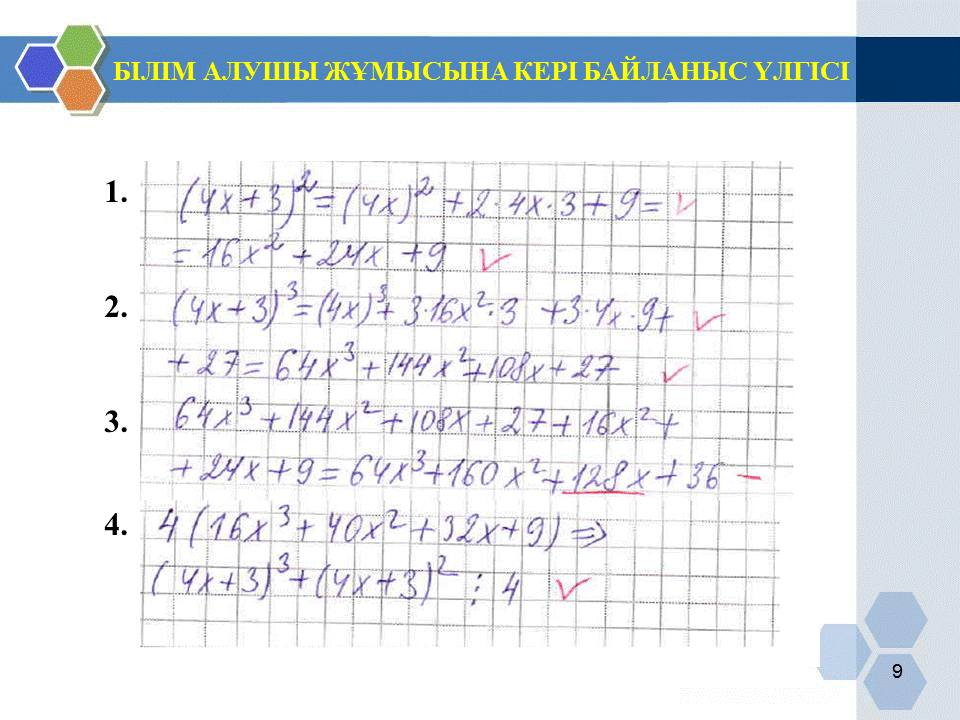 БІЛІМ АЛУШЫ ЖҰМЫСЫНА КЕРІ БАЙЛАНЫС ҮЛГІСІ
1. (4x+3)² = (4x)² + 2·4x·3 + 9 = ✓
= 16x² + 24x + 9 ✓
2. (4x+3)³ = (4x)³ + 3·16x²·3 + 3·4x·9 + ✓
+ 27 = 64x³ + 144x² + 108x + 27 ✓
3. 64x³ + 144x² + 108x + 27 + 16x² +
+ 24x + 9 = 64x³ + 160x² + 128x + 36 –
4. 4(16x³ + 40x² + 32x + 9) ⇒
(4x+3)³ + (4x+3)² ⋮ 4 ✓
9